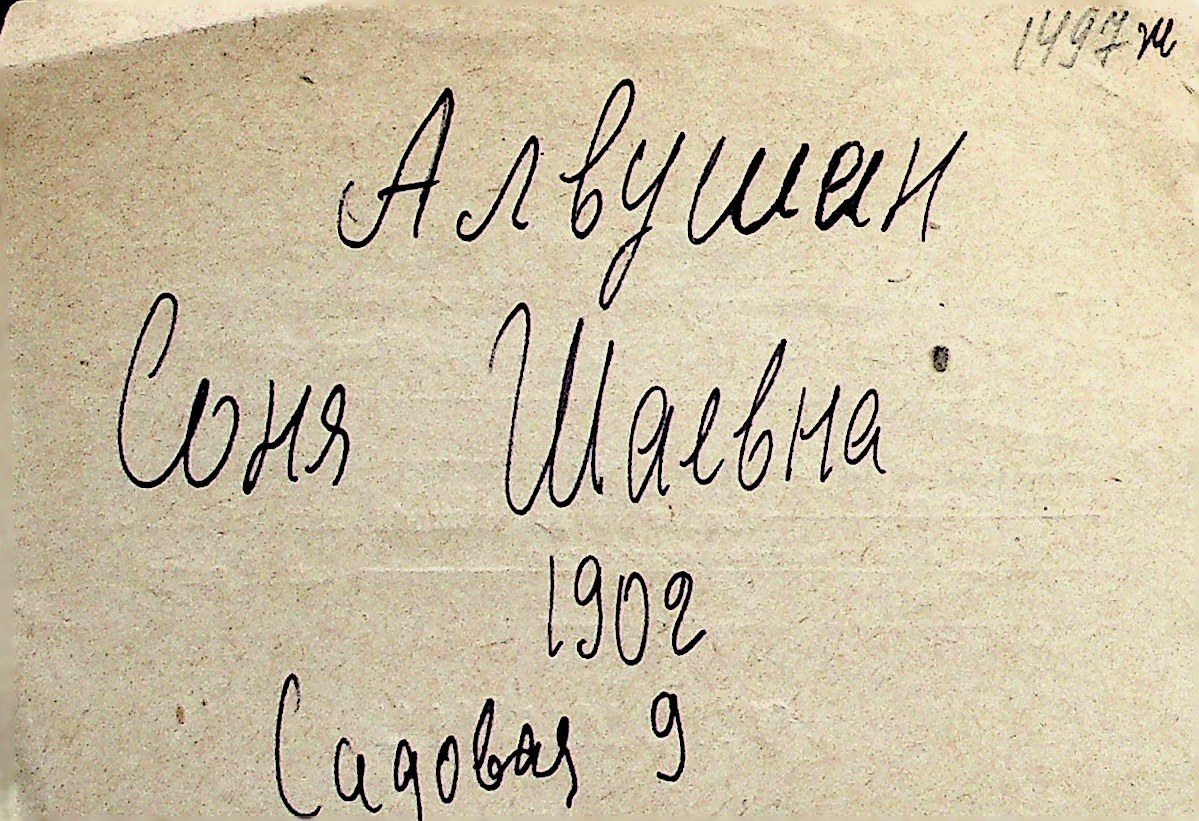 1497 ж
Алвушан
Соня Шаевна
1902
Садовая 9